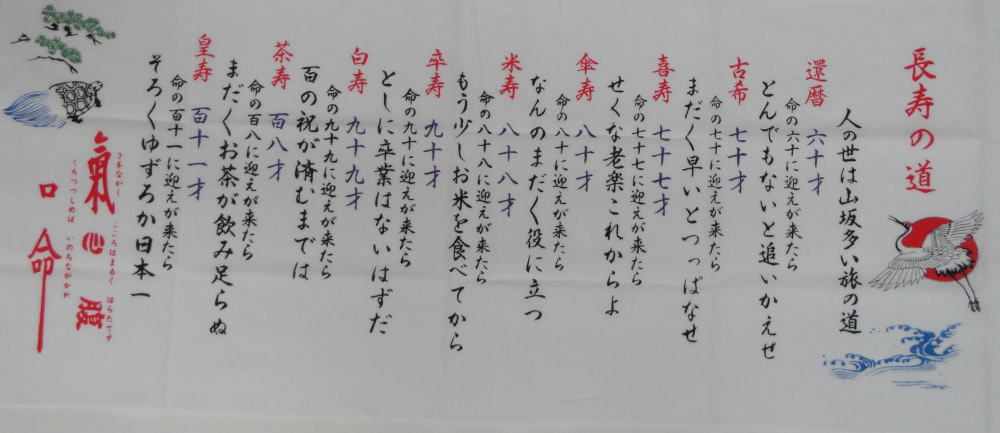 長寿の道
人の世は山坂多い旅の道
還暦 六十才
命の六十に迎えが来たら
とんでもないと追いかえせ
古希 七十才
命の七十に迎えが来たら
まだ〱早いとつっぱなせ
喜寿 七十七才
命の七十七に迎えが来たら
せくな老楽これからよ
傘寿 八十才
命の八十に迎えが来たら
なんのまだ〱役に立つ
米寿 八十八才
命の八十八に迎えが来たら
もう少しお米を食べてから
卒寿 九十才
命の九十に迎えが来たら
としに卒業はないはずだ
白寿 九十九才
命の九十九に迎えが来たら
百の祝が済むまでは
茶寿 百八才
命の百八に迎えが来たら
まだ〱お茶が飲み足らぬ
皇寿 百十一才
命の百十一に迎えが来たら
そろ〱ゆずろか日本一
氣 心 腹
きをながく こころはまるく はらたてず
口 命
くちつつしめば いのちながかれ